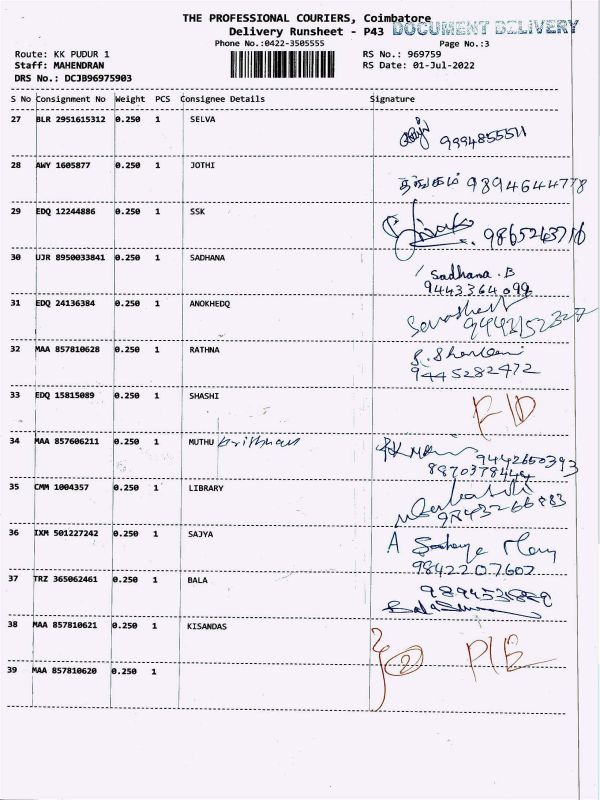 THE PROFESSIONAL COURIERS, Coimbatore
Delivery Runsheet - P43 DOCUMENT DELIVERY
Phone No.:0422-3505555 Page No.:3
Route: KK PUDUR 1 RS No.: 969759
Staff: MAHENDRAN RS Date: 01-Jul-2022
DRS No.: DCJB96975903
S No Consignment No Weight PCS Consignee Details Signature
27 BLR 2951615312 0.250 1 SELVA
9994855511
28 AWY 1605877 0.250 1 JOTHI
தங்கம் 9894644778
29 EDQ 12244886 0.250 1 SSK
9865243716
30 UJR 8950033841 0.250 1 SADHANA
Sadhana.B
9443364099
31 EDQ 24136384 0.250 1 ANOKHEDQ
32 MAA 857810628 0.250 1 RATHNA
9445282472
33 EDQ 15815089 0.250 1 SHASHI
34 MAA 857606211 0.250 1 MUTHU Krishnan
9442650393
35 CMM 1004357 0.250 1 LIBRARY
36 IXM 501227242 0.250 1 SAJYA
A
9842207607
37 TRZ 365062461 0.250 1 BALA
38 MAA 857810621 0.250 1 KISANDAS
2
39 MAA 857810620 0.250 1